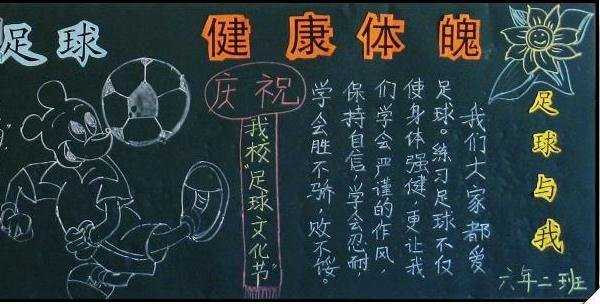 足球
健康体魄
庆祝
我校“足球文化节”
我们大家都爱
足球。练习足球不仅
使身体强健，更让我
们学会严谨的作风，
保持自信，学会忍耐，
学会胜不骄，败不馁。
足球与我
六年二班